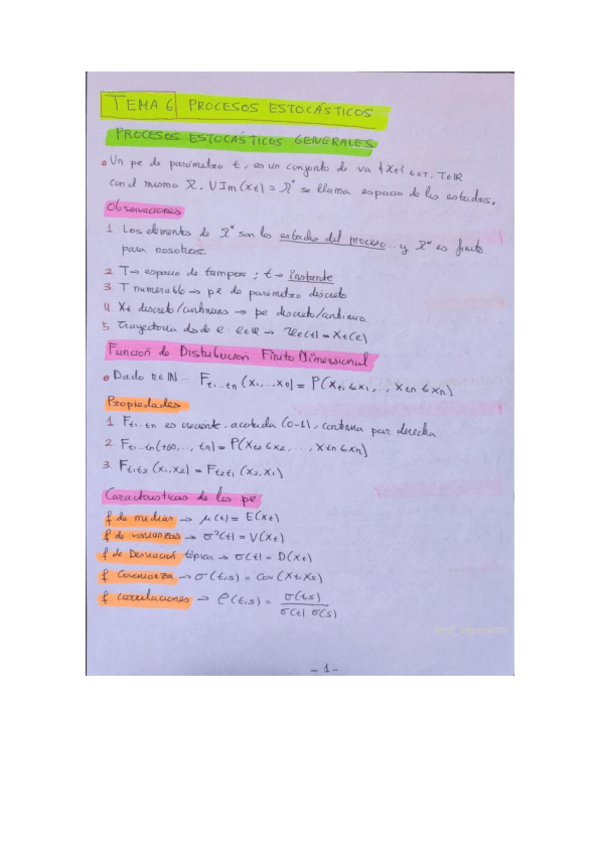 TEMA 6 PROCESOS ESTOCÁSTICOS
PROCESOS ESTOCÁSTICOS GENERALES
• Un pe de parámetro t, es un conjunto de va {Xt} t∈T, T∈ℝ
con el mismo Ω. U Im(xt) = Ω* se llama espacio de los estados.
Observaciones
1. Los elementos de Ω* son los estados del proceso y Ω* es finito
para nosotros.
2. T → espacio de tiempos ; t → instante
3. T numerable → pe de parámetro discreto
4. Xt discreto/continuas → pe discreto/continuo
5. Trayectoria de e : e∈Ω → (t) = Xt(e)
Función de Distribución Finito Dimensional
• Dado n∈ℕ... Ft1...tn (x1,...xn) = P(Xt1≤x1,..., Xtn≤xn)
Propiedades
1. Ft1...tn es creciente, acotada (0-1), continua por derecha
2. Ft1...tn(+∞,..., tn) = P(Xt2≤x2,..., Xtn≤xn)
3. Ft1t2 (x1,x2) = Ft2t1 (x2,x1)
Características de los pe
f de medias → μ(t) = E(Xt)
f de varianzas → σ²(t) = V(Xt)
f de Desviación típica → σ(t) = D(Xt)
f Covarianza → σ(t,s) = Cov(Xt,Xs)
f correlaciones → ρ(t,s) = σ(t,s) / σ(t) σ(s)
- 1 -